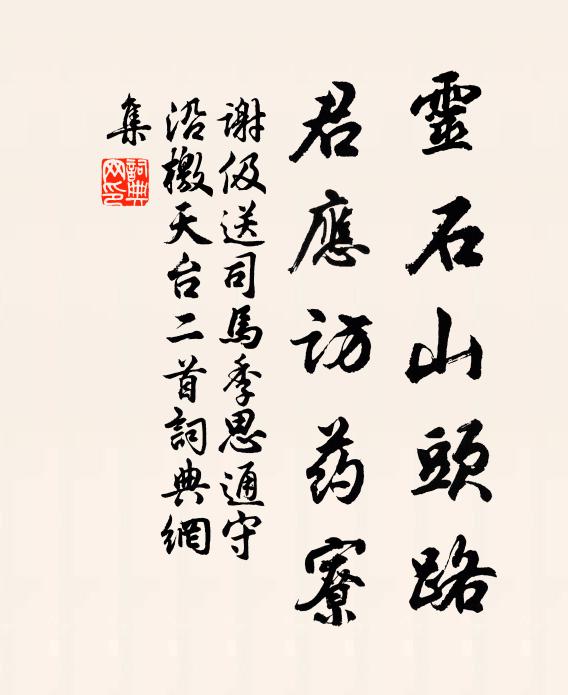 靈石山頭路
君應訪药寮
謝伋送司馬季思通守
沿檄天台二首詞典網
集
詞典网印